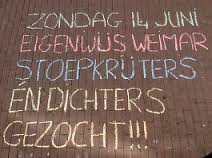 ZONDAG 14 JUNI
EIGENWIJS WEIMAR
STOEPKRIJTERS
ÉN DICHTERS
GEZOCHT!!!